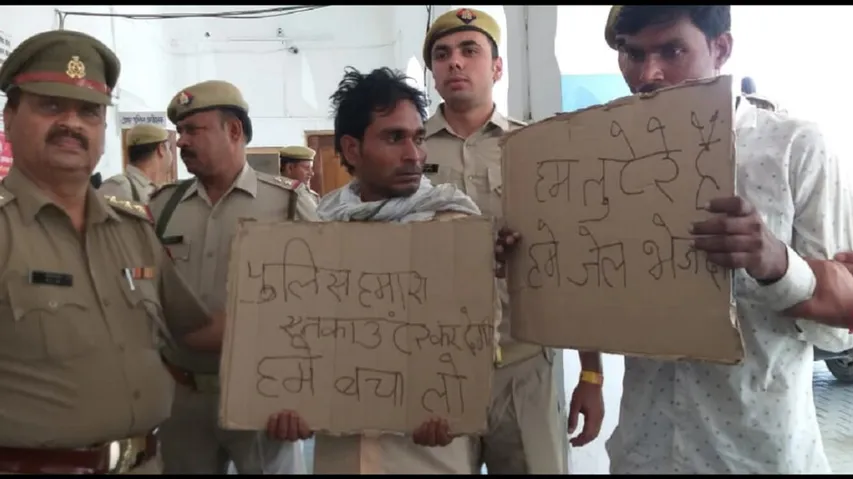 पुलिस हमारा
इनकाउंटर कर देगी
हमे बचा लो
हम लुटेरे हैं
हमे जेल भेज दो